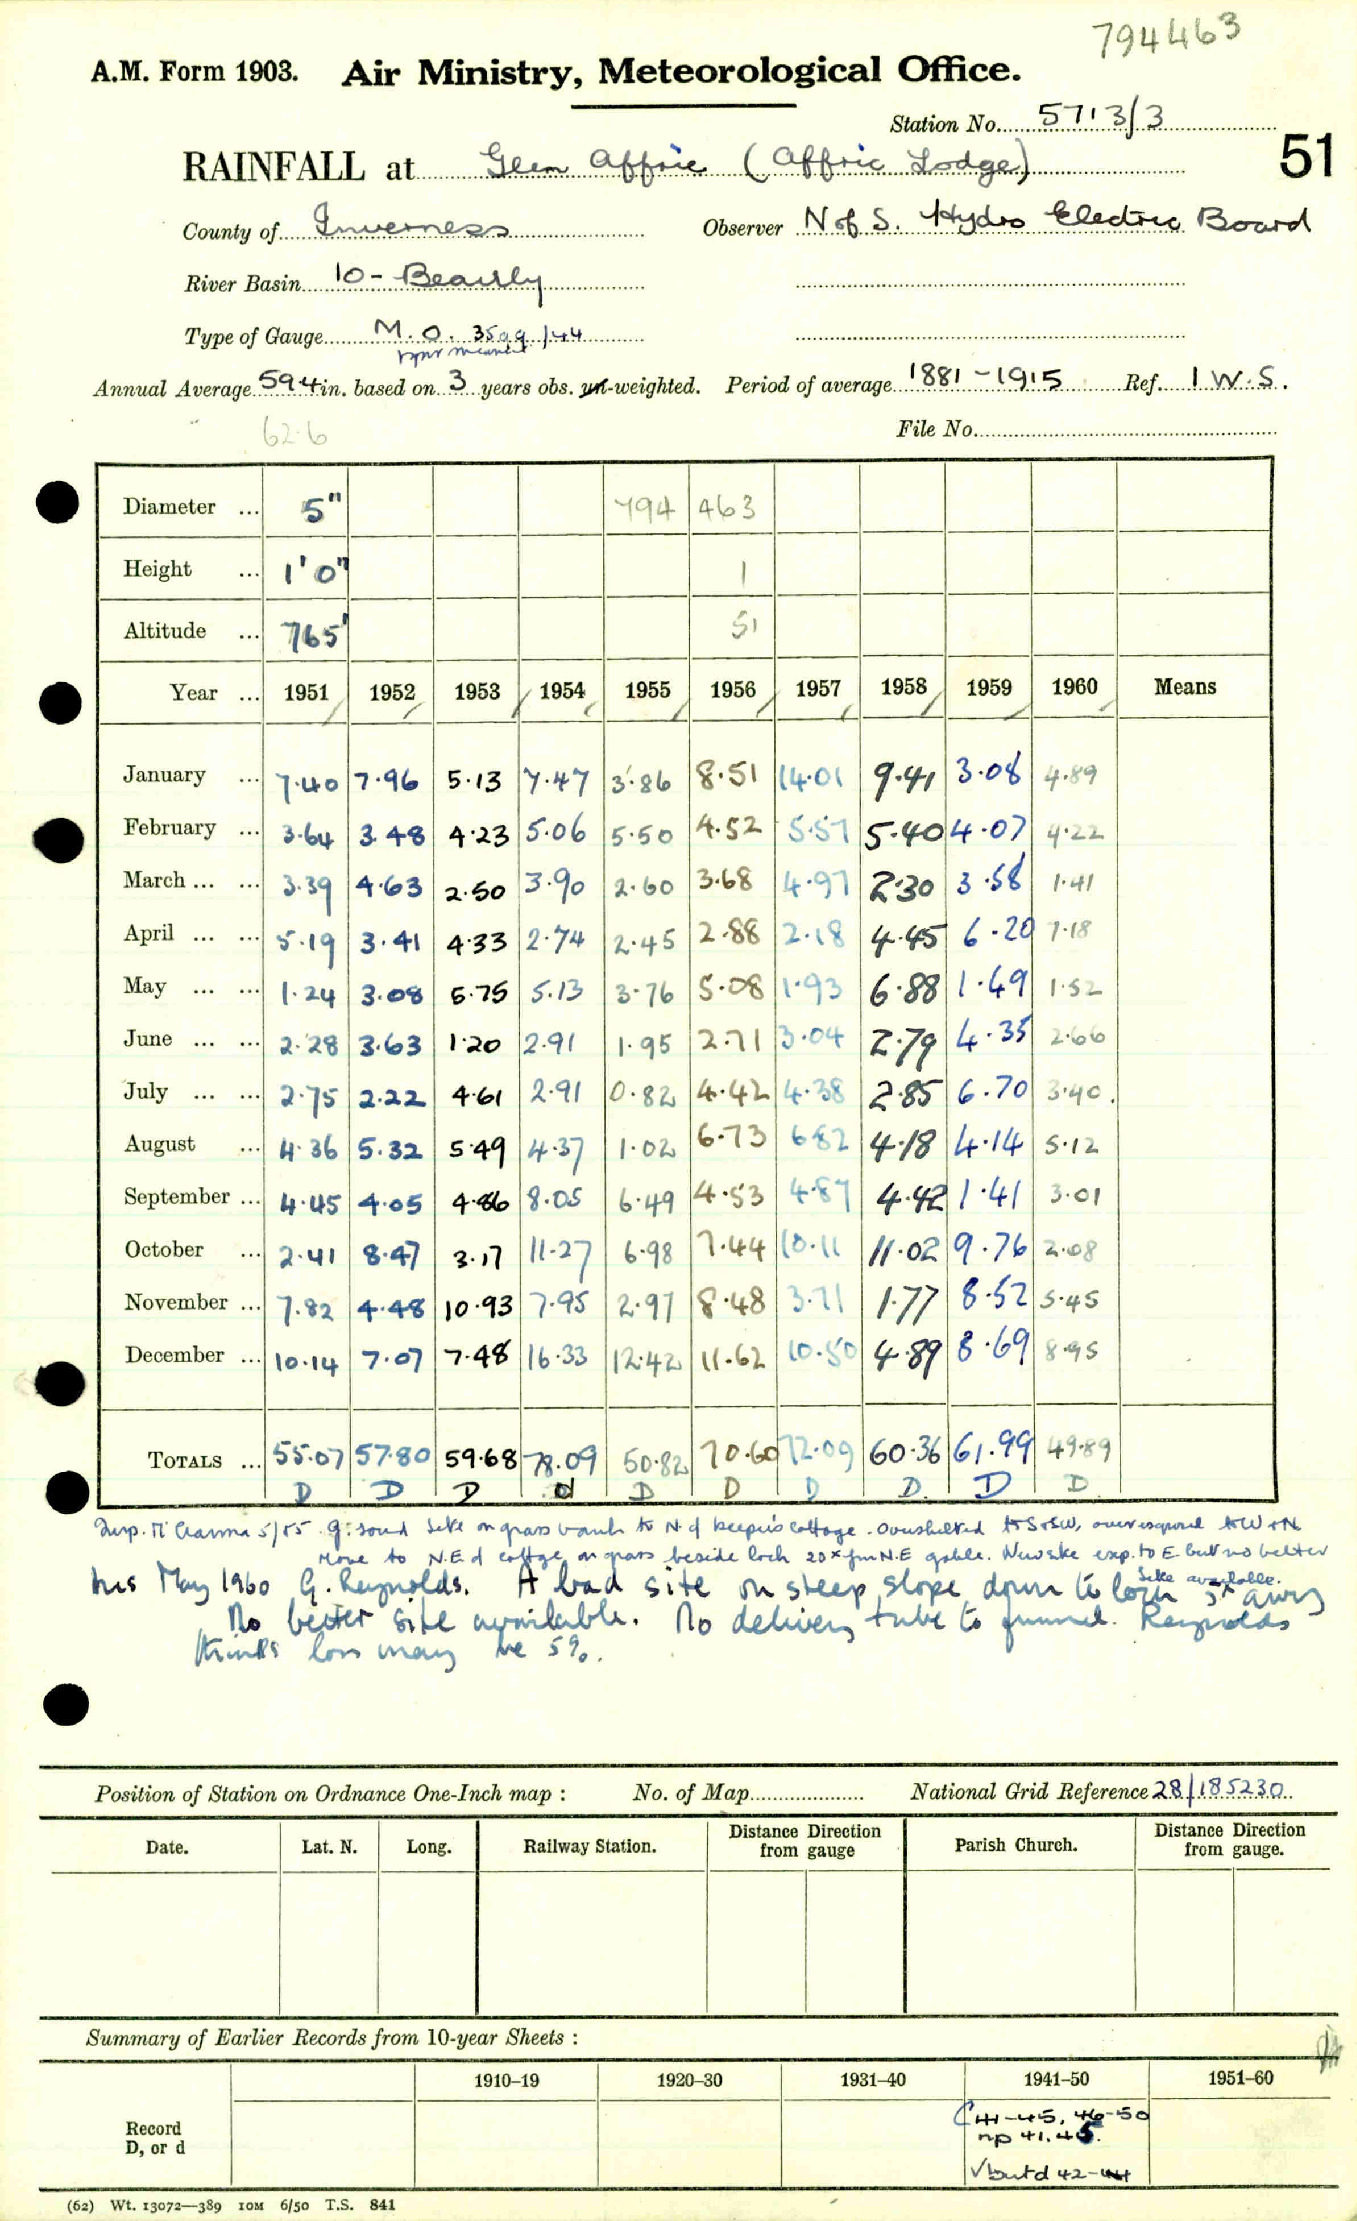 794463
A.M. Form 1903. Air Ministry, Meteorological Office.
Station No. 5713/3
51
RAINFALL at Glen Affric (Affric Lodge)
County of Inverness Observer N of S. Hydro Electric Board
River Basin 10 - Beauly
Type of Gauge M.O. 35 /44
Annual Average 59.4 in. based on 3 years obs. un-weighted. Period of average 1881-1915 Ref. I W.S.
62.6 File No.
Diameter ... 5" 794 463
Height ... 1'0" 1
Altitude ... 765' 51
Year ... 1951 1952 1953 1954 1955 1956 1957 1958 1959 1960 Means
January ... 7.40 7.96 5.13 7.47 3.86 8.51 14.01 9.41 3.08 4.89
February ... 3.64 3.48 4.23 5.06 5.50 4.52 5.57 5.40 4.07 4.22
March ... ... 3.39 4.63 2.50 3.90 2.60 3.68 4.97 2.30 3.58 1.41
April ... ... 5.19 3.41 4.33 2.74 2.45 2.88 2.18 4.45 6.20 7.18
May ... ... 1.24 3.08 5.75 5.13 3.76 5.08 1.93 6.88 1.49 1.52
June ... ... 2.28 3.63 1.20 2.91 1.95 2.71 3.04 2.79 4.35 2.66
July ... ... 2.75 2.22 4.61 2.91 0.82 4.42 4.38 2.85 6.70 3.40
August ... 4.36 5.32 5.49 4.37 1.02 6.73 6.82 4.18 4.14 5.12
September ... 4.45 4.05 4.86 8.05 6.49 4.53 4.87 4.42 1.41 3.01
October ... 2.41 8.47 3.17 11.27 6.98 7.44 10.11 11.02 9.76 2.08
November ... 7.82 4.48 10.93 7.95 2.97 8.48 3.71 1.77 8.52 5.45
December ... 10.14 7.07 7.48 16.33 12.42 11.62 10.50 4.89 8.69 8.95
TOTALS ... 55.07 57.80 59.68 78.09 50.82 70.60 72.09 60.36 61.99 49.89
D D D d D D D D D D
Insp. 5/55 g: sound site on grass bank to N of keeper's cottage. Oversheltered to S+SW, overexposed to W+N
Move to N.E of cottage on grass beside loch 20x fm N.E gable. New site exp. to E but no better site available.
Ins May 1960 G. Reynolds. A bad site on steep slope down to loch 5x away
No better site available. No delivery tube to funnel. Reynolds
thinks loss may be 5%.
Position of Station on Ordnance One-Inch map : No. of Map National Grid Reference 28/185230
Date. Lat. N. Long. Railway Station. Distance Direction from gauge Parish Church. Distance Direction from gauge.
Summary of Earlier Records from 10-year Sheets :
1910–19 1920–30 1931–40 1941–50 1951–60
Record
D, or d
C 41-45, 46-50
np 41.45.
√ but d 42-44
(62) Wt. 13072—389 10M 6/50 T.S. 841